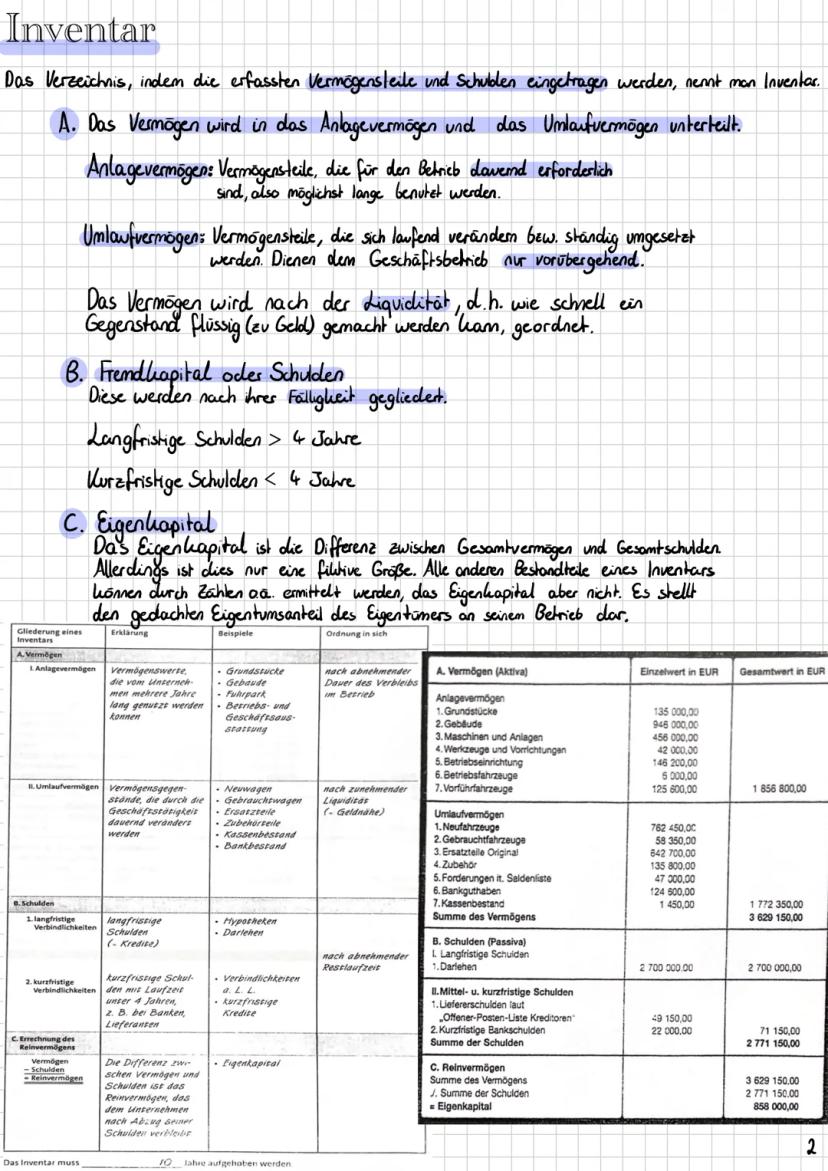 Inventar
Das Verzeichnis, indem die erfassten Vermögensteile und Schulden eingetragen werden, nennt man Inventar.
A. Das Vermögen wird in das Anlagevermögen und das Umlaufvermögen unterteilt.
Anlagevermögen: Vermögensteile, die für den Betrieb dauernd erforderlich
sind, also möglichst lange benutzt werden.
Umlaufvermögen: Vermögensteile, die sich laufend verändern bzw. ständig umgesetzt
werden. Dienen dem Geschäftsbetrieb nur vorübergehend.
Das Vermögen wird nach der Liquidität, d.h. wie schnell ein
Gegenstand flüssig (zu Geld) gemacht werden kann, geordnet.
B. Fremdkapital oder Schulden
Diese werden nach ihrer Fälligkeit gegliedert.
Langfristige Schulden > 4 Jahre
Kurzfristige Schulden < 4 Jahre
C. Eigenkapital
Das Eigenkapital ist die Differenz zwischen Gesamtvermögen und Gesamtschulden.
Allerdings ist dies nur eine fiktive Größe. Alle anderen Bestandteile eines Inventars
können durch Zählen o.a. ermittelt werden, das Eigenkapital aber nicht. Es stellt
den gedachten Eigentumsanteil des Eigentümers an seinem Betrieb dar.
Gliederung eines Inventars
Erklärung
Beispiele
Ordnung in sich
A. Vermögen
I. Anlagevermögen
Vermögenswerte,
die vom Unterneh-
men mehrere Jahre
lang genutzt werden
können
• Grundstücke
• Gebäude
• Fuhrpark
• Betriebs- und
Geschäftsaus-
stattung
nach abnehmender
Dauer des Verbleibs
im Betrieb
II. Umlaufvermögen
Vermögensgegen-
stände, die durch die
Geschäftstätigkeit
dauernd verändert
werden
• Neuwagen
• Gebrauchtwagen
• Ersatzteile
• Zubehörteile
• Kassenbestand
• Bankbestand
nach zunehmender
Liquidität
(- Geldnähe)
B. Schulden
1. langfristige
Verbindlichkeiten
langfristige
Schulden
(- Kredite)
• Hypotheken
• Darlehen
nach abnehmender
Restlaufzeit
2. kurzfristige
Verbindlichkeiten
kurzfristige Schul-
den mit Laufzeit
unter 4 Jahren,
z. B. bei Banken,
Lieferanten
• Verbindlichkeiten
a. L. L.
• kurzfristige
Kredite
C. Errechnung des
Reinvermögens
Vermögen
– Schulden
= Reinvermögen
Die Differenz zwi-
schen Vermögen und
Schulden ist das
Reinvermögen, das
dem Unternehmen
nach Abzug seiner
Schulden verbleibt
• Eigenkapital
Das Inventar muss 10 Jahre aufgehoben werden
A. Vermögen (Aktiva) Einzelwert in EUR Gesamtwert in EUR
Anlagevermögen
1. Grundstücke 135 000,00
2. Gebäude 946 000,00
3. Maschinen und Anlagen 456 000,00
4. Werkzeuge und Vorrichtungen 42 000,00
5. Betriebseinrichtung 146 200,00
6. Betriebsfahrzeuge 6 000,00
7. Vorführfahrzeuge 125 600,00 1 856 800,00
Umlaufvermögen
1. Neufahrzeuge 762 450,00
2. Gebrauchtfahrzeuge 58 350,00
3. Ersatzteile Original 642 700,00
4. Zubehör 135 800,00
5. Forderungen lt. Saldenliste 47 000,00
6. Bankguthaben 124 600,00
7. Kassenbestand 1 450,00 1 772 350,00
Summe des Vermögens 3 629 150,00
B. Schulden (Passiva)
I. Langfristige Schulden
1. Darlehen 2 700 000,00 2 700 000,00
II. Mittel- u. kurzfristige Schulden
1. Liefererschulden laut
„Offener-Posten-Liste Kreditoren" 49 150,00
2. Kurzfristige Bankschulden 22 000,00 71 150,00
Summe der Schulden 2 771 150,00
C. Reinvermögen
Summe des Vermögens 3 629 150,00
./. Summe der Schulden 2 771 150,00
= Eigenkapital 858 000,00
2